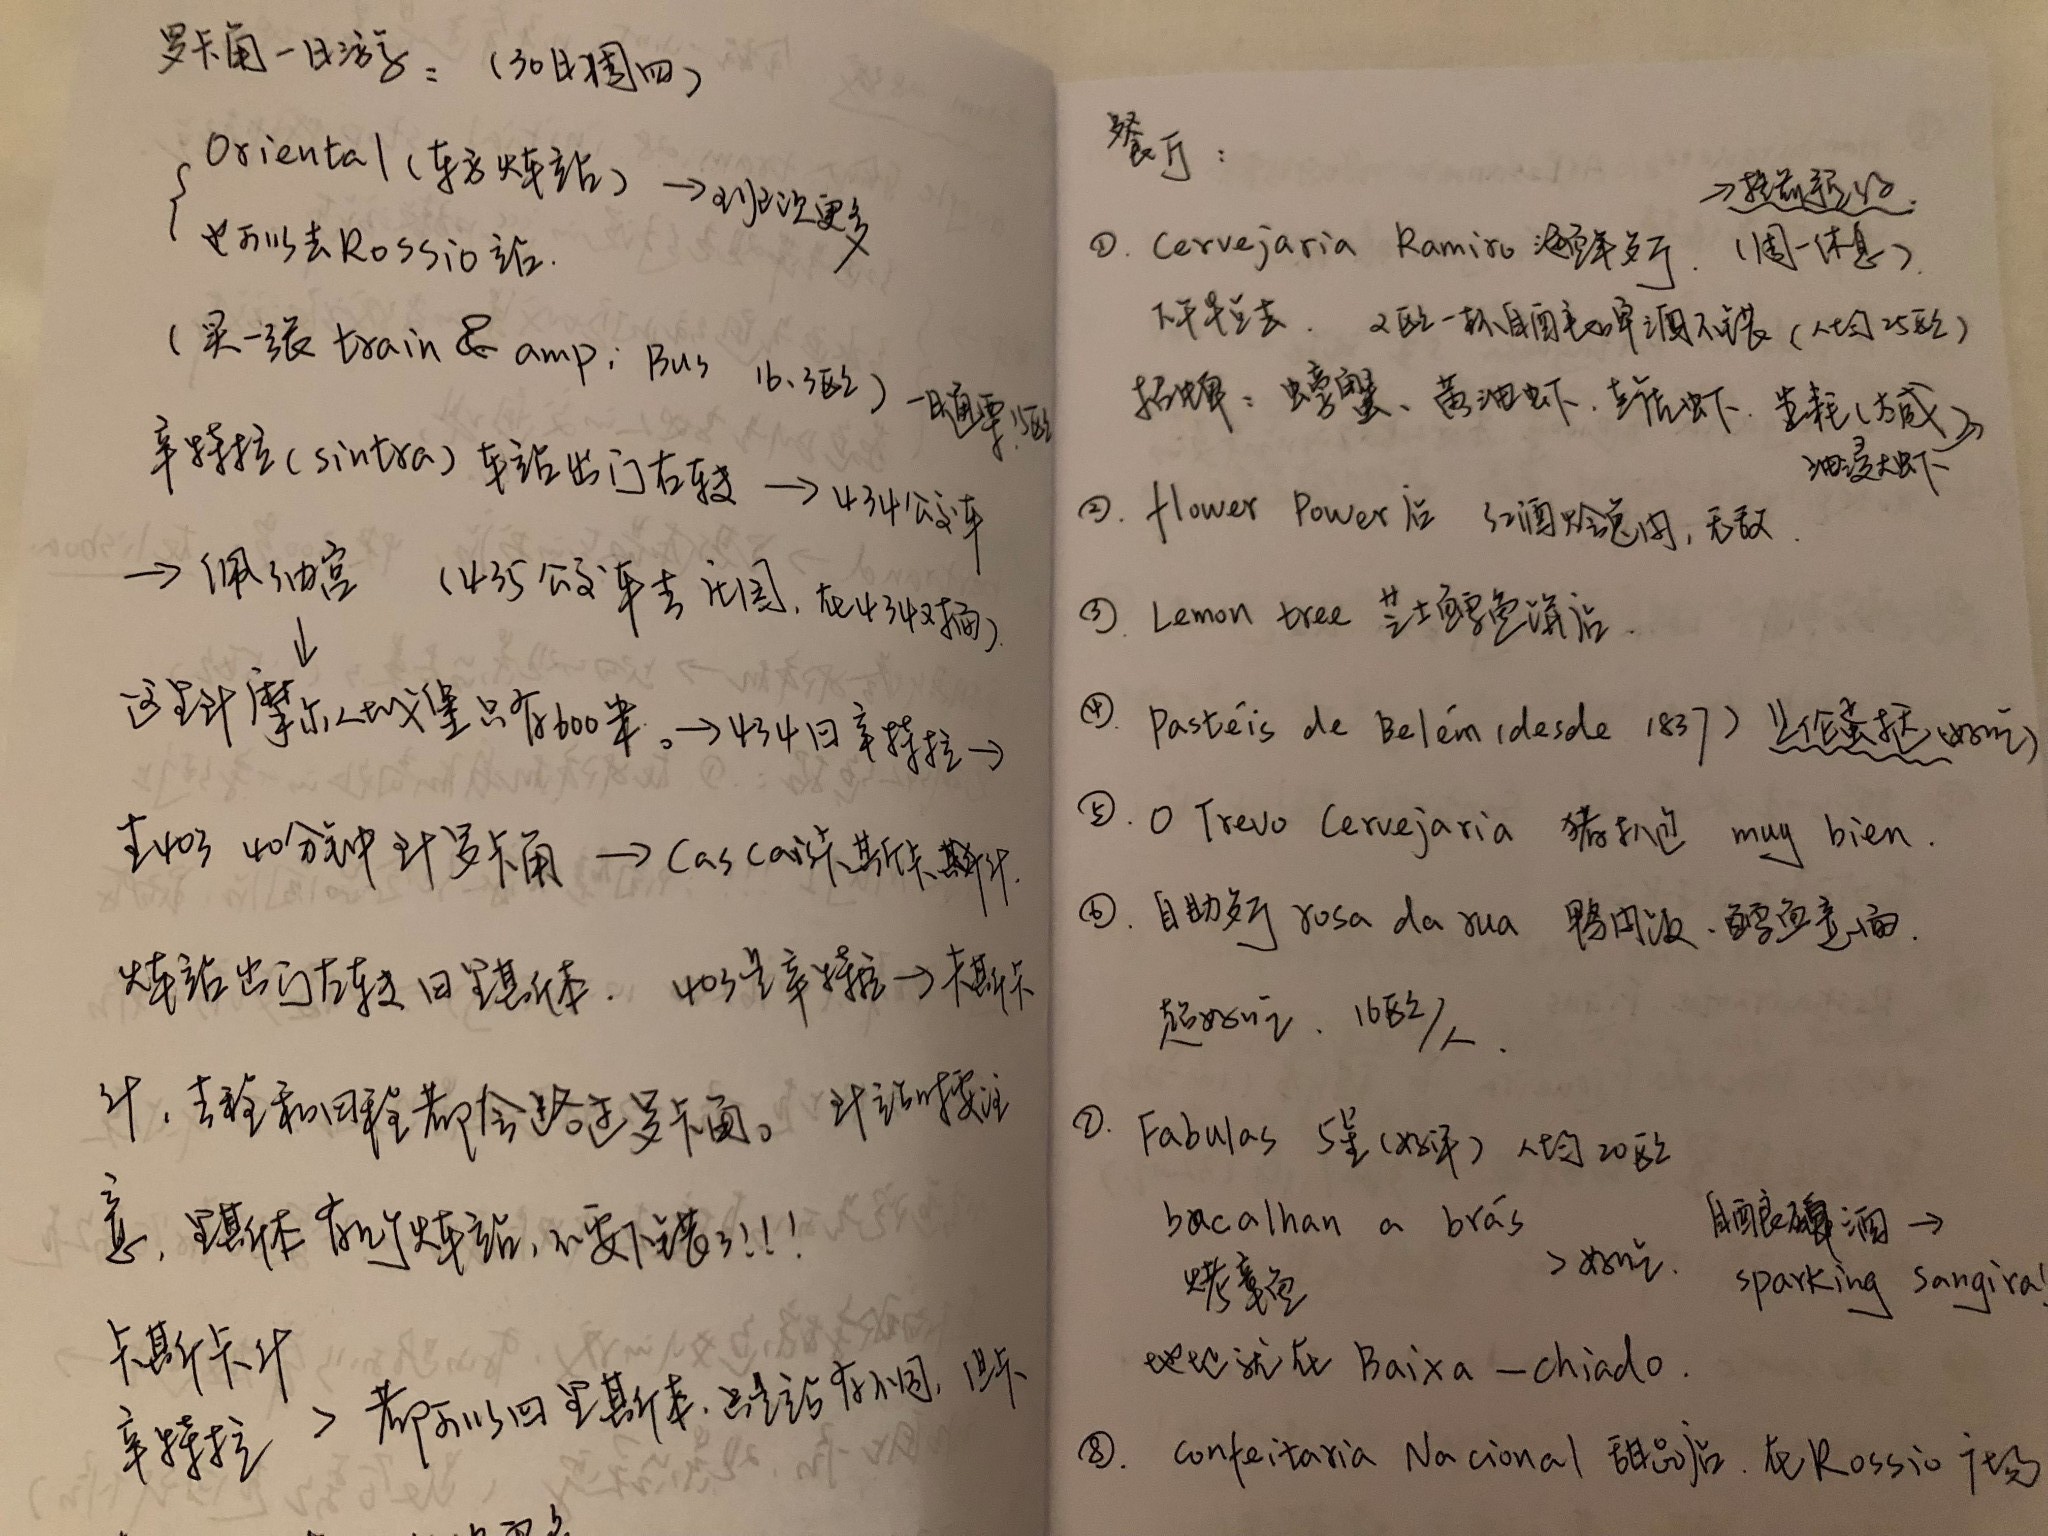 罗卡角一日游：（30日周四）
Oriental（东方火车站）→班次更多
也可以去Rossio站.
（买一张 train & amp; Bus 16.3欧）一日通票15欧
辛特拉（sintra）车站出门右转 → 434公交车
→ 佩纳宫 （435公交车去庄园，在434对面）
↓
这里到摩尔人城堡只有600米。→434回辛特拉→
坐403 40分钟到罗卡角 → Cascais卡斯卡斯
火车站出门左转回里斯本. 403是辛特拉→卡斯卡
什，去程和回程都会路过罗卡角。 到站时要注
意，里斯本有几个火车站，不要下错了!!!
卡斯卡什
辛特拉 > 都可以回里斯本，只是站有不同，但卡
餐厅：
→提前预约.
①. Cervejaria Ramiro 海鲜餐厅. （周一休息）.
下午早点去. 2欧一杯自酿啤酒不错（人均25欧）
招牌：螃蟹、黄油虾. 生蚝（大咸）
油浸大虾
②. flower Power店 红酒烩兔肉，无敌.
③. Lemon tree 芝士鳕鱼饼店.
④. Pastéis de Belém（desde 1837）蛋挞（好吃）
⑤. O Trevo Cervejaria 猪扒包 muy bien.
⑥. 自助餐厅 rosa da rua 鸭肉饭、鳕鱼意面.
超好吃. 16欧/人.
⑦. Fabulas 5星（好评） 人均20欧
bacalhan a brás
烤章鱼 > 好吃. 自酿酒 →
sparking sangira!
地址就在 Baixa-chiado.
⑧. Confeitaria Nacional 甜品店. 在Rossio广场